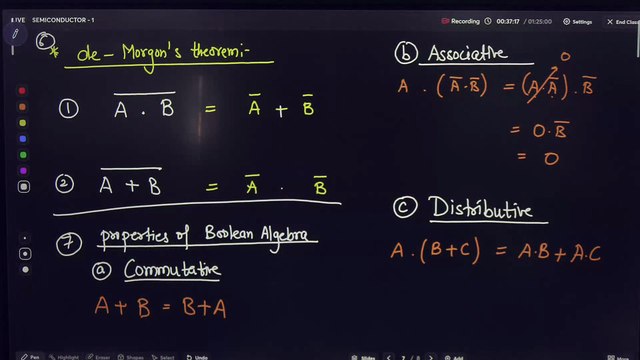 LIVE SEMICONDUCTOR - 1
Recording
00:37:17 / 01:25:00
Settings
End Class
⑥ * de - Morgon's theorem:-
① A̅ ̅·̅ ̅B̅ = A̅ + B̅
② A̅ ̅+̅ ̅B̅ = A̅ · B̅
⑦ properties of Boolean Algebra
ⓐ Commutative
A + B = B + A
ⓑ Associative
0
A · (A̅ · B̅) = (A · A̅) · B̅
= 0 · B̅
= 0
ⓒ Distributive
A · (B + C) = A.B + A.C
Pen Highlight Eraser Shapes Select Undo Slides 7 / 8 Add